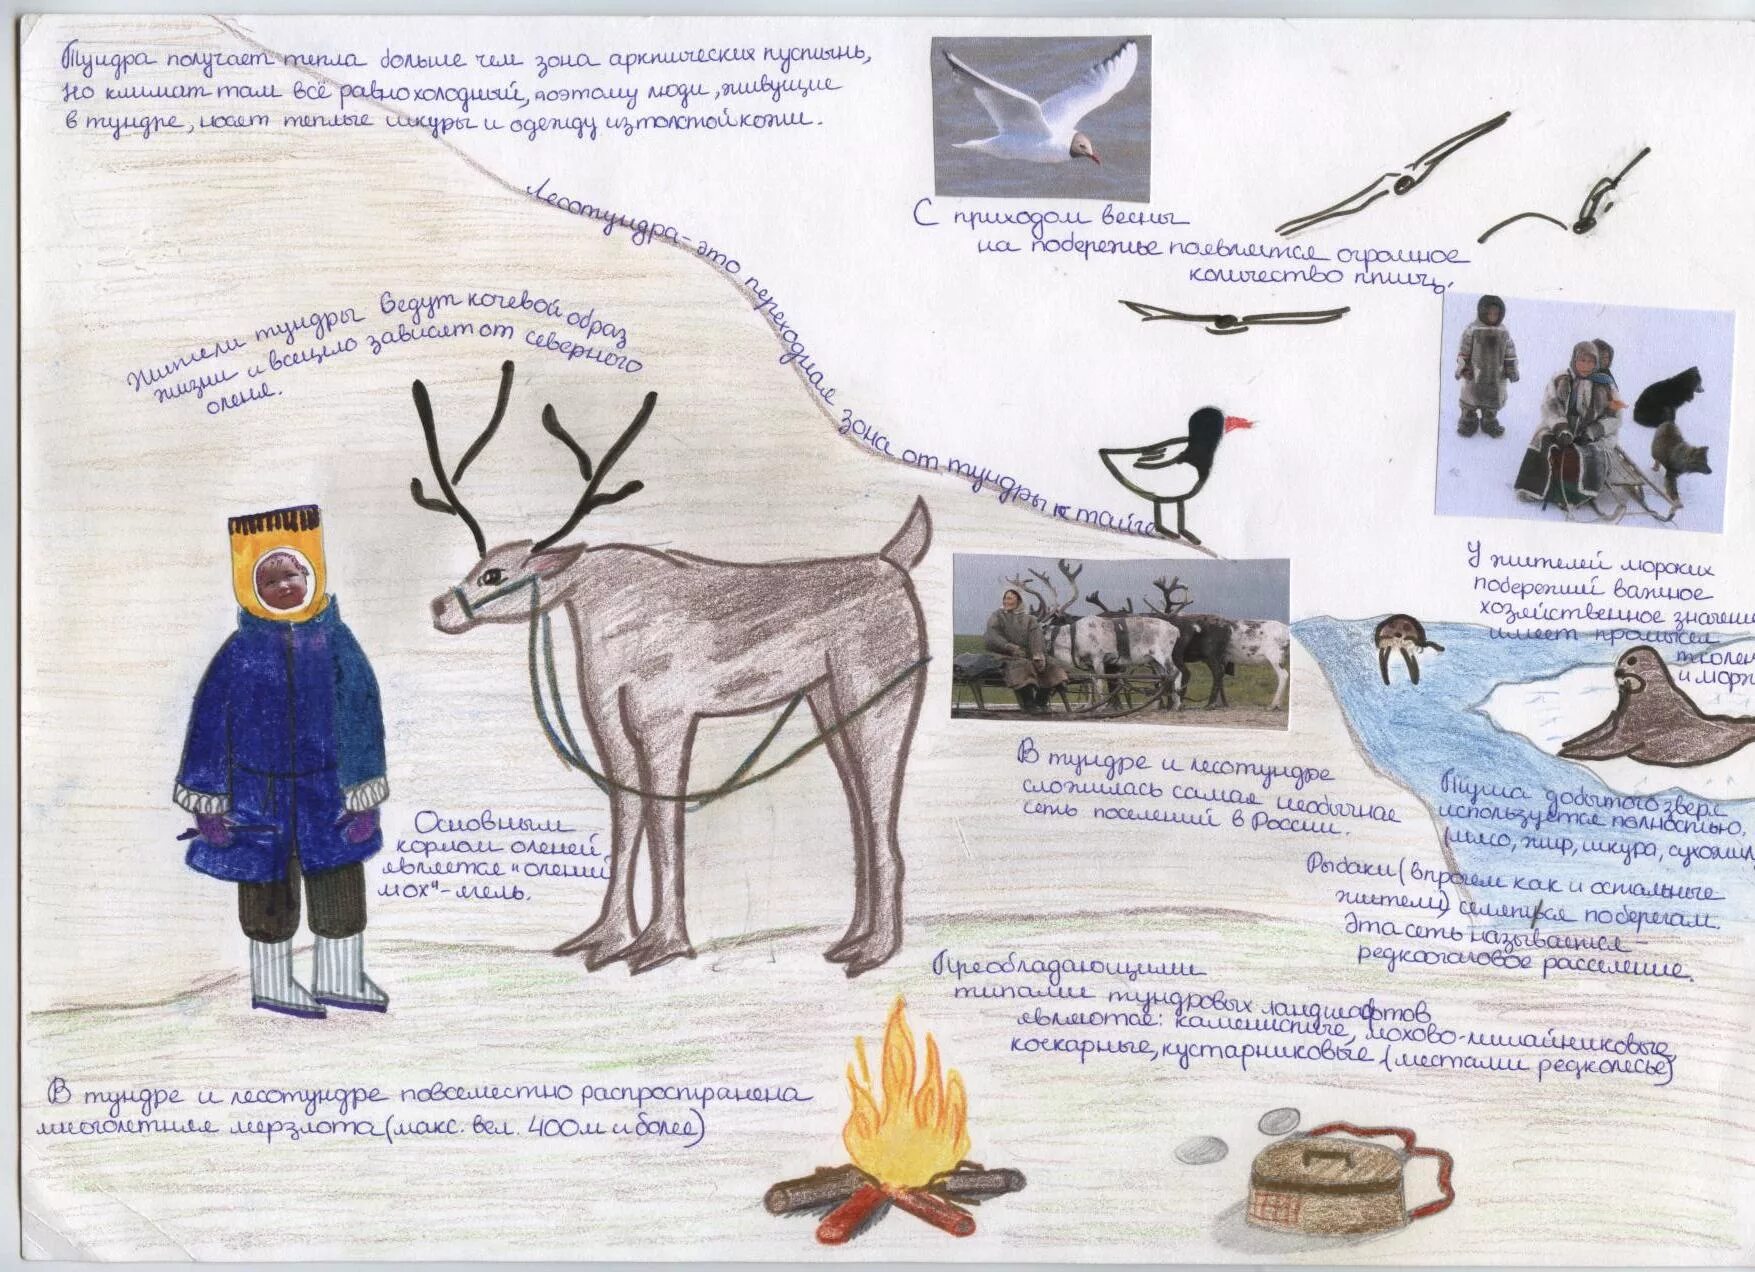 Тундра получает тепла больше чем зона арктических пустынь,
но климат там всё равно холодный, поэтому люди, живущие
в тундре, носят теплые шкуры и одежду из толстой кожи.
Лесотундра - это переходная зона от тундры к тайге
С приходом весны
на побережье появляется огромное
количество птиц.
Жители тундры ведут кочевой образ
жизни и всецело зависят от северного
оленя.
У жителей морских
побережий важное
хозяйственное значени
имеет промысел
тюлен
и морж
Основным
кормом оленей
является "олений
мох" - ягель.
В тундре и лесотундре
сложилась самая необычная
сеть поселений в России.
Туша добытого зверя
используется полностью.
(мясо, жир, шкура, сухожил
Рыбаки (впрочем как и остальные
жители) селятся по берегам.
Эта сеть называется -
редкоочаговое расселение.
Преобладающими
типами тундровых ландшафтов
являются: каменистые, мохово-лишайниковые,
кочкарные, кустарниковые (местами редколесье)
В тундре и лесотундре повсеместно распространена
многолетняя мерзлота (макс. вел. 400м и более)